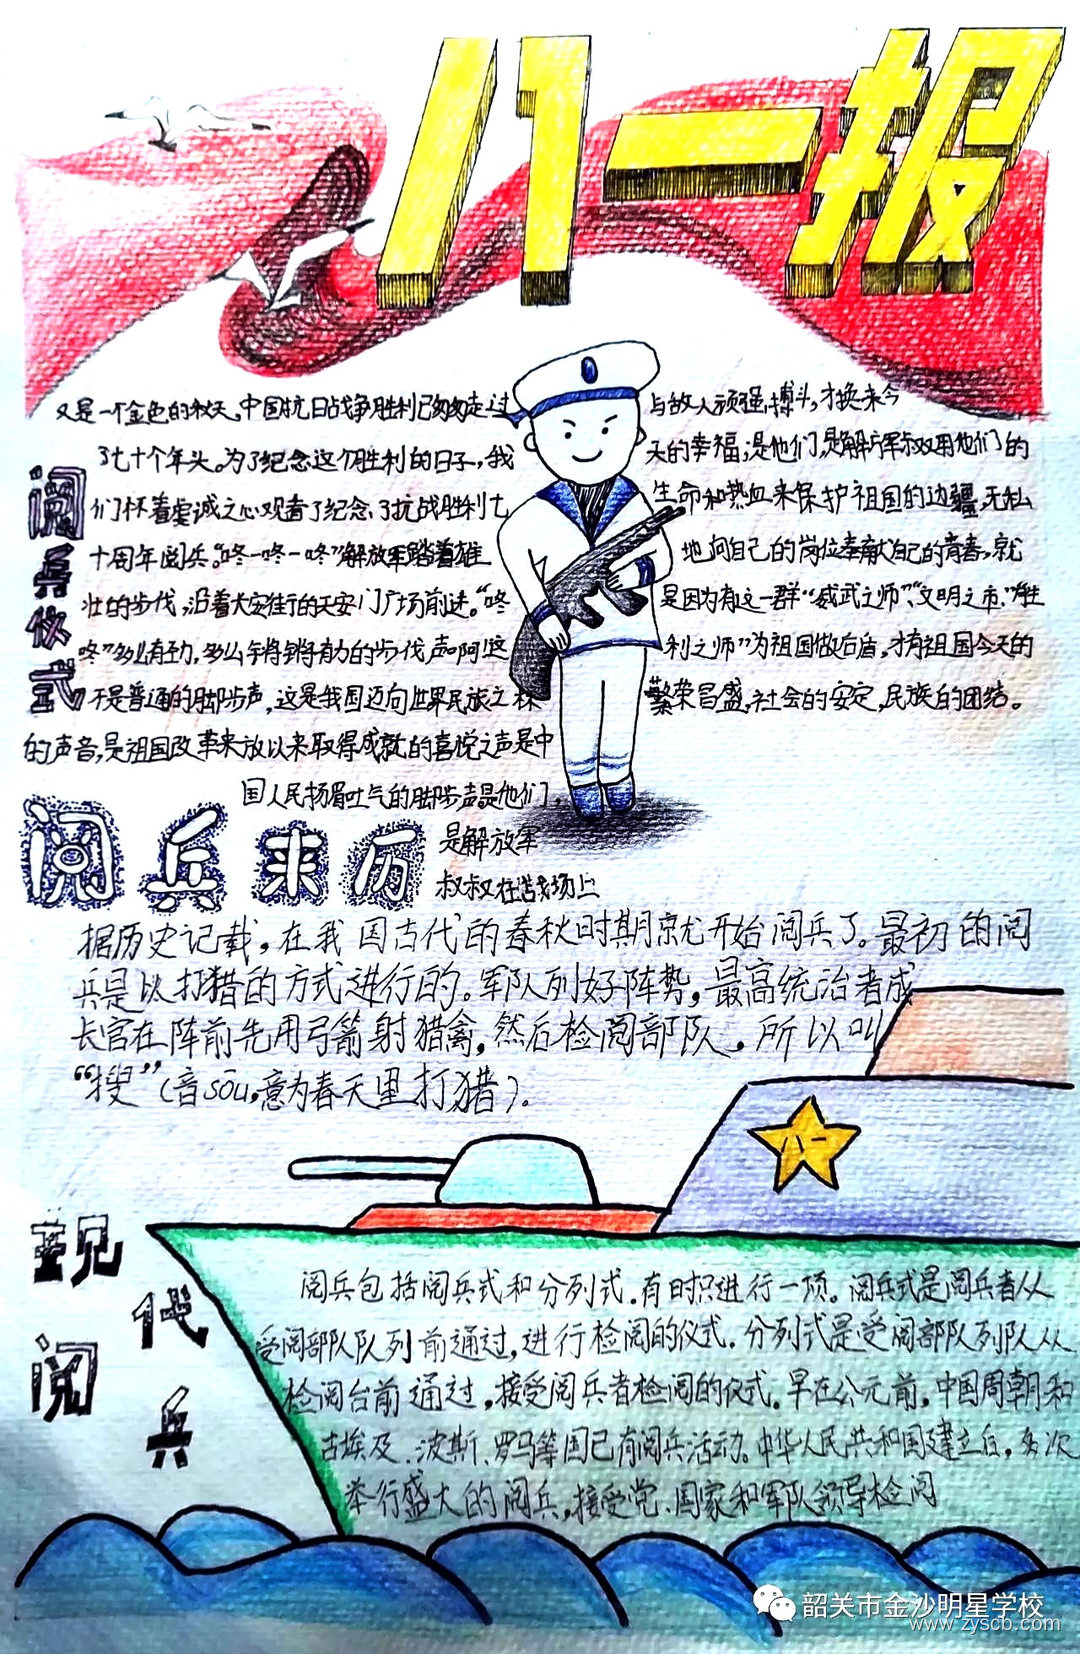 八一报
阅兵仪式
又是一个金色的秋天。中国抗日战争胜利已匆匆走过
了七十个年头。为了纪念这个胜利的日子，我
们怀着虔诚之心观看了纪念了抗战胜利七
十周年阅兵。“咚-咚-咚”解放军踏着雄
壮的步伐，沿着大安街的天安门广场前进。“咚
咚”多么有劲，多么铿锵有力的步伐声啊！这
不是普通的脚步声，这是我国迈向世界民族之林
的声音，是祖国改革来放以来取得成就的喜悦之声是中
国人民扬眉吐气的脚步声是他们，
是解放军
叔叔在战场上
与敌人顽强搏斗，才换来今
天的幸福，是他们，是解放军叔叔用他们的
生命和热血来保护祖国的边疆，无私
地向自己的岗位奉献自己的青春，就
是因为有这一群“威武之师”、“文明之市”、“胜
利之师”为祖国做后盾，才有祖国今天的
繁荣昌盛，社会的安定，民族的团结。
阅兵来历
据历史记载，在我国古代的春秋时期就开始阅兵了。最初的阅
兵是以打猎的方式进行的。军队列好阵势，最高统治者成
长官在阵前先用弓箭射猎禽，然后检阅部队，所以叫
“搜”（音sōu，意为春天里打猎）。
现代阅兵
阅兵包括阅兵式和分列式。有时只进行一项。阅兵式是阅兵者从
受阅部队队列前通过，进行检阅的仪式。分列式是受阅部队列队从
检阅台前通过，接受阅兵者检阅的仪式。早在公元前，中国周朝和
古埃及、波斯、罗马等国已有阅兵活动。中华人民共和国建立后，多次
举行盛大的阅兵，接受党、国家和军队领导检阅
八一
韶关市金沙明星学校
www.zyscb.com